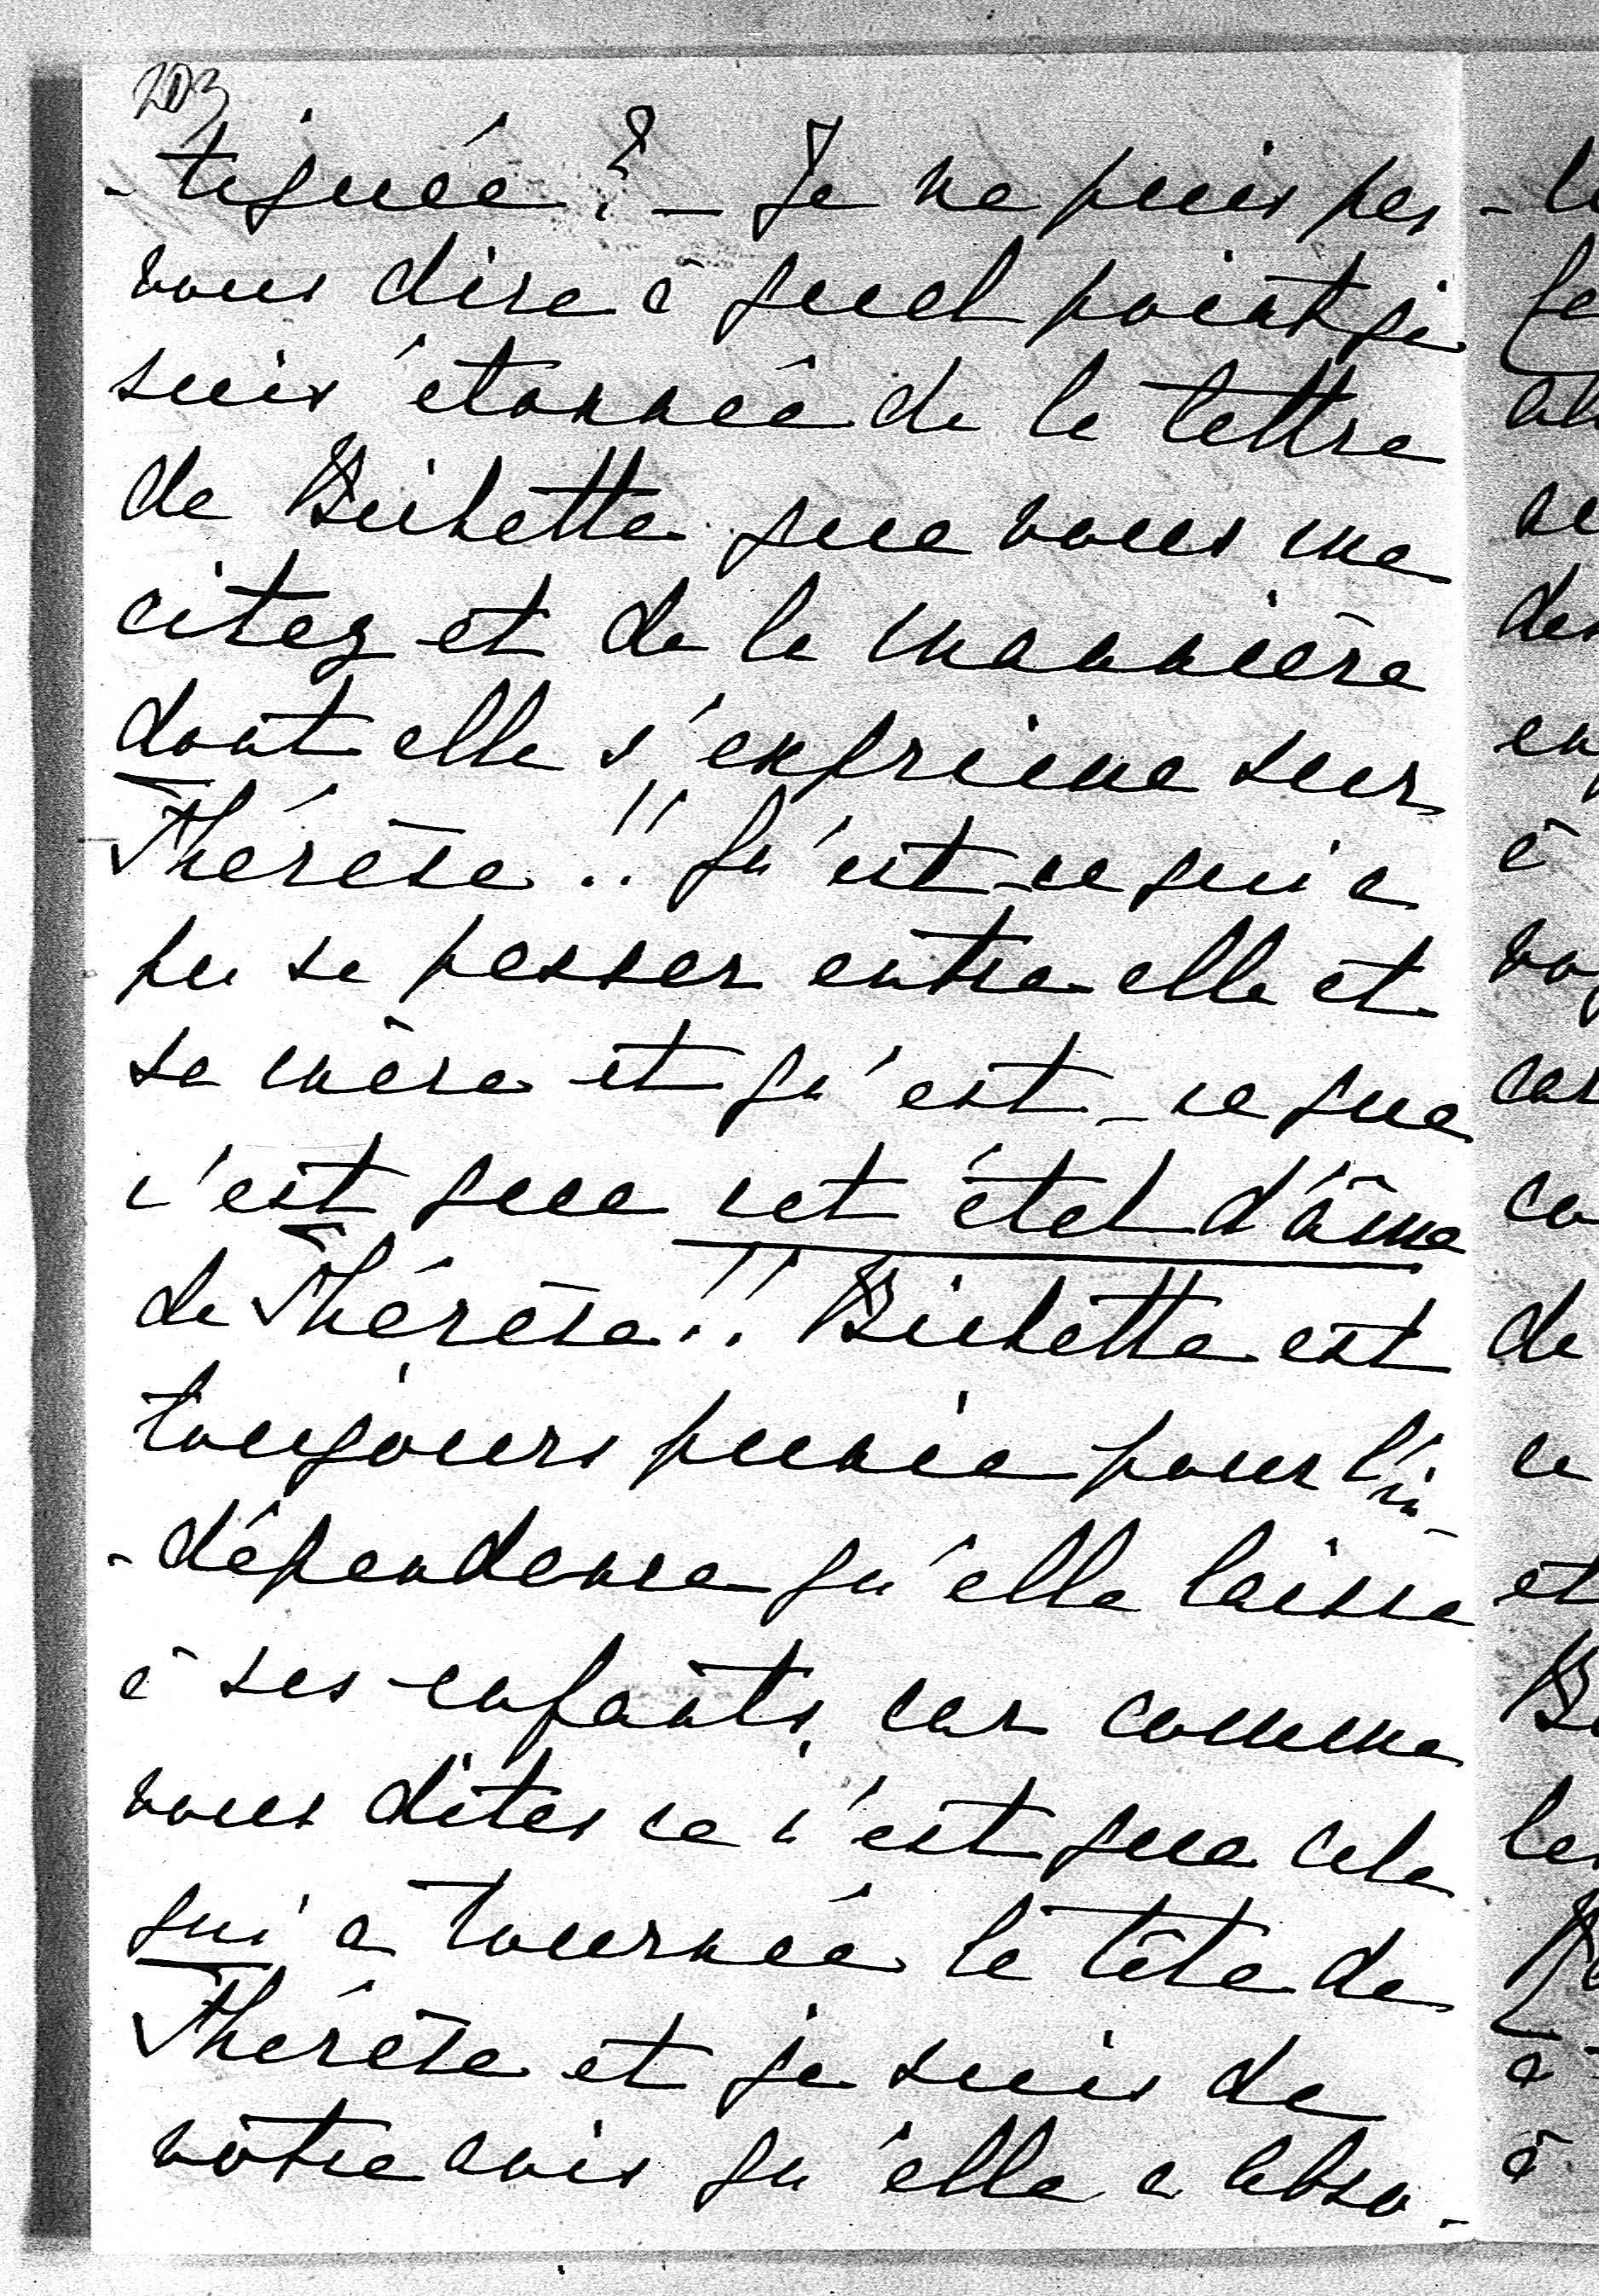 203
-tiguée ? – Je ne puis pas
vous dire à quel point je
suis étonnée de la lettre
de Bichette que vous me
citez et de la mannière
dont elle s'exprime sur
Thérèse !! Qu'est-ce qui a
pu se passer entre elle et
sa mère et qu'est-ce que
c'est que cet état d'âme
de Thérèse !! Bichette est
toujours punie pour l'in-
-dépendance qu'elle laisse
à ses enfants, car comme
vous dites ce n'est que cela
qui a tournée la tête de
Thérèse et je suis de
vôtre avis qu'elle a abso-